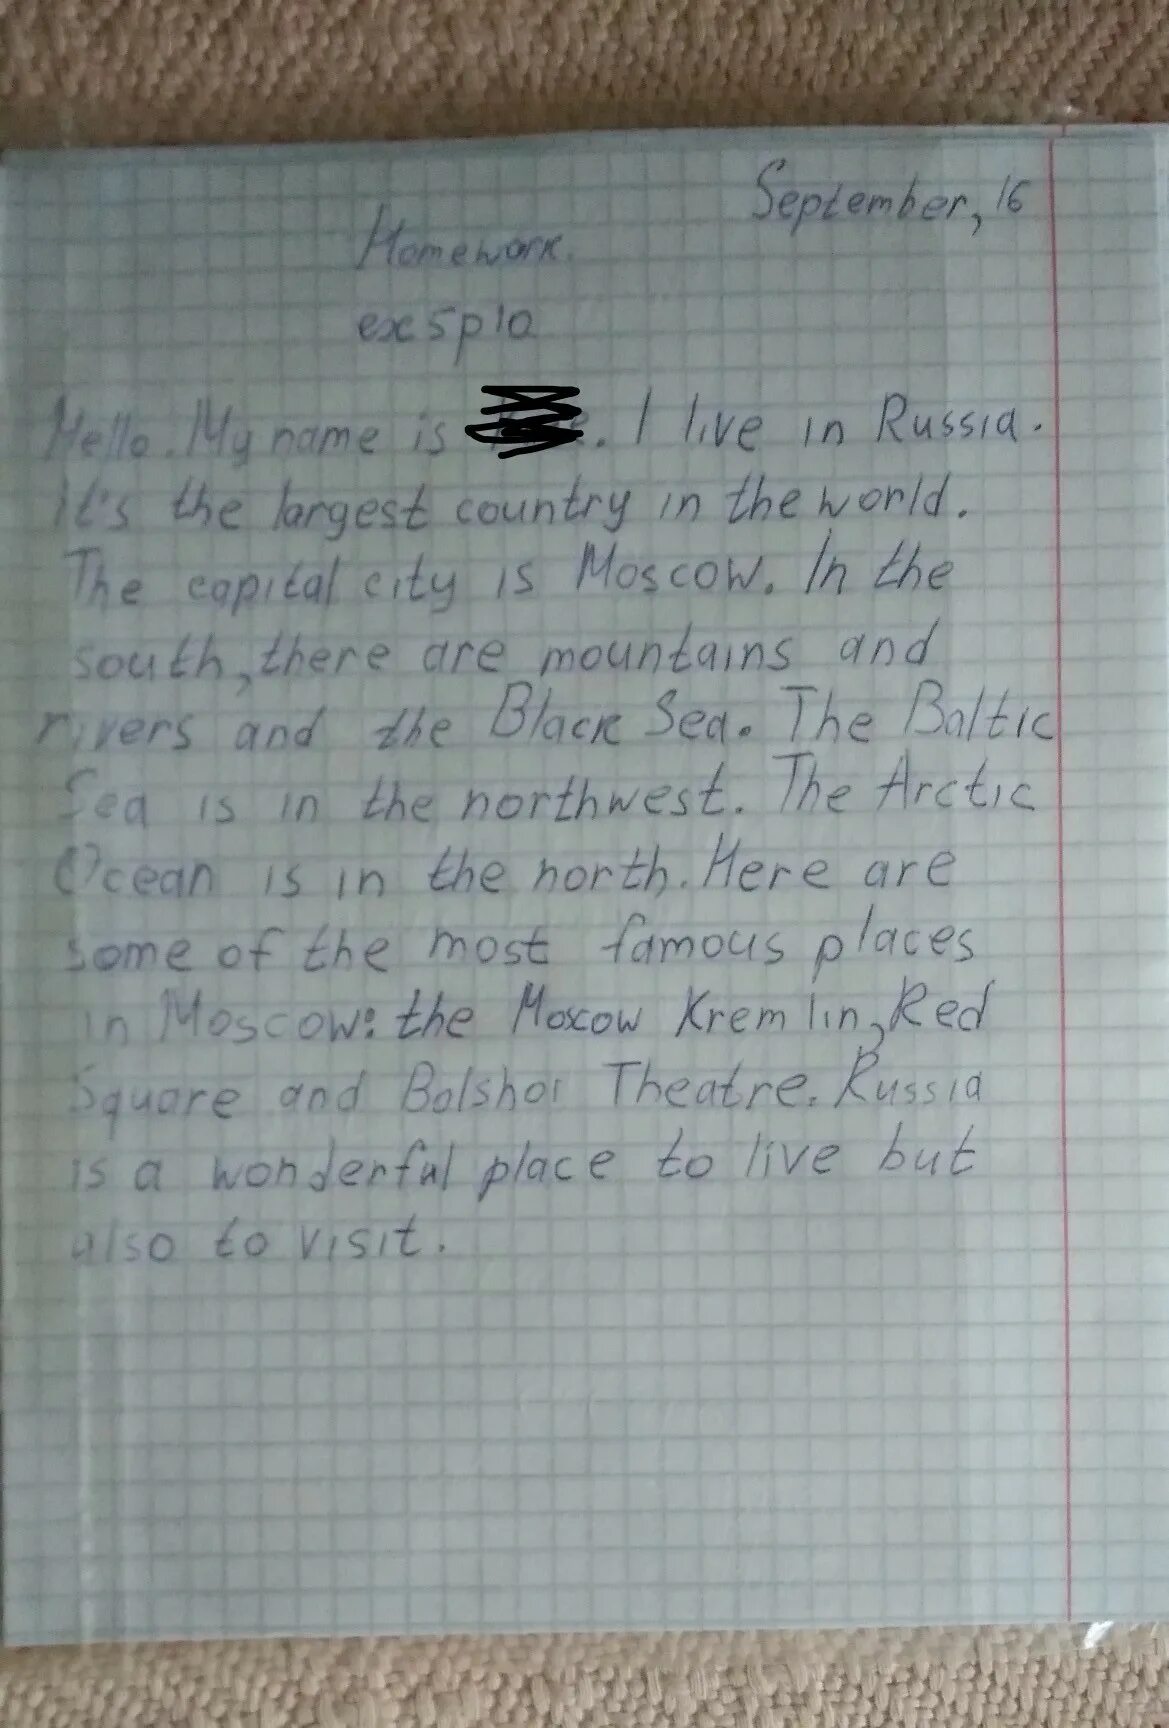 September, 16
Homework.
ex 5 p 10
Hello. My name is . I live in Russia.
it's the largest country in the world.
The capital city is Moscow. In the
south, there are mountains and
rivers and the Black Sea. The Baltic
Sea is in the northwest. The Arctic
Ocean is in the north. Here are
some of the most famous places
in Moscow: the Moscow Kremlin, Red
Square and Bolshoi Theatre. Russia
is a wonderful place to live but
also to visit.